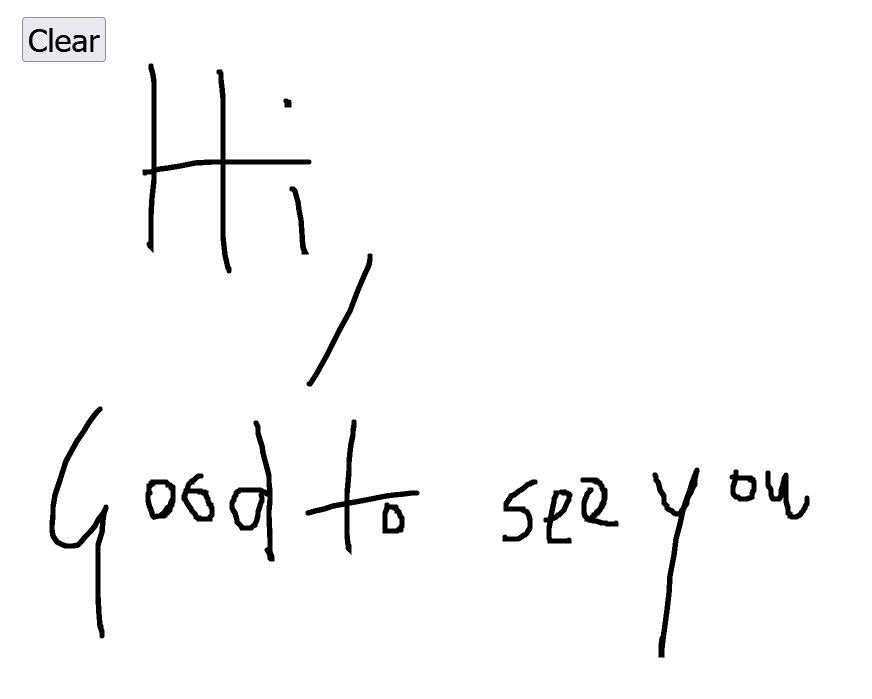 Clear
Hi,
Good to see you